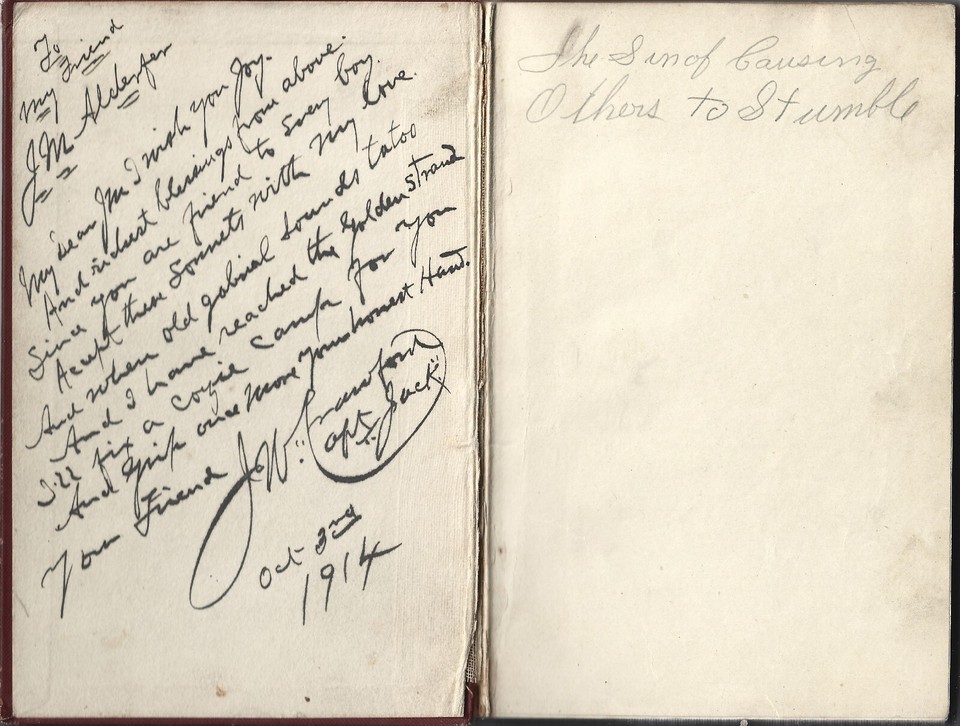 To
my Friend
J M Alderfer
My dear Jm I wish you Joy.
And richest blessings from above.
Since you are friend to every boy.
Accept these Sonnets with my love.
And when old gabriel sounds tatoo
And I have reached the golden strand
I'll fix a cozie camp for you
And Grip once more your honest Hand.
Your Friend J.W. Crawford
"Capt. Jack"
Oct 3rd
1914
The Sin of Causing
Others to Stumble